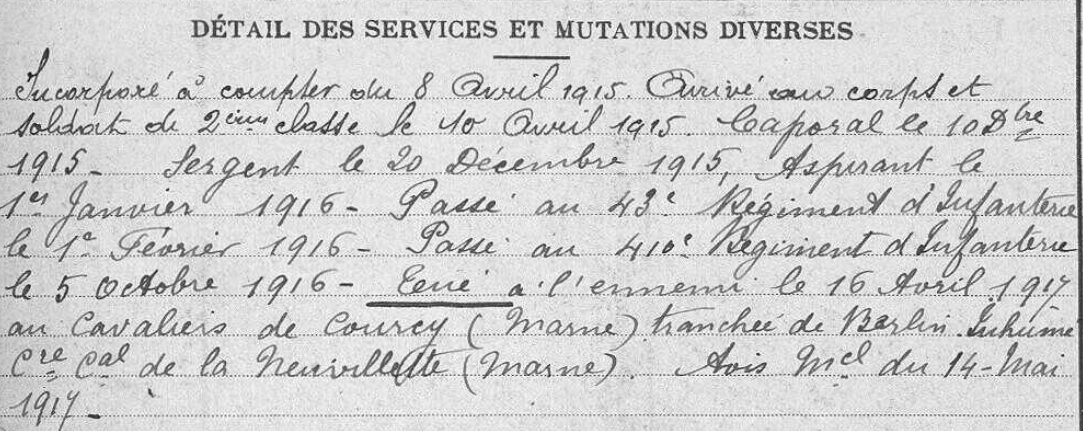 DÉTAIL DES SERVICES ET MUTATIONS DIVERSES
Incorporé à compter du 8 Avril 1915. Arrivé au corps et
soldat de 2ème classe le 10 Avril 1915. Caporal le 10 Dbre
1915 - Sergent le 20 Décembre 1915, Aspirant le
1er Janvier 1916 - Passé au 43e Régiment d'Infanterie
le 1er Février 1916 - Passé au 410e Régiment d'Infanterie
le 5 Octobre 1916 - Tué à l'ennemi le 16 Avril 1917
au Cavaliers de Courcy (Marne) tranchée de Berlin. Inhumé
Cre Cal de la Neuvillette (Marne). Avis Mel du 14 - Mai
1917 -